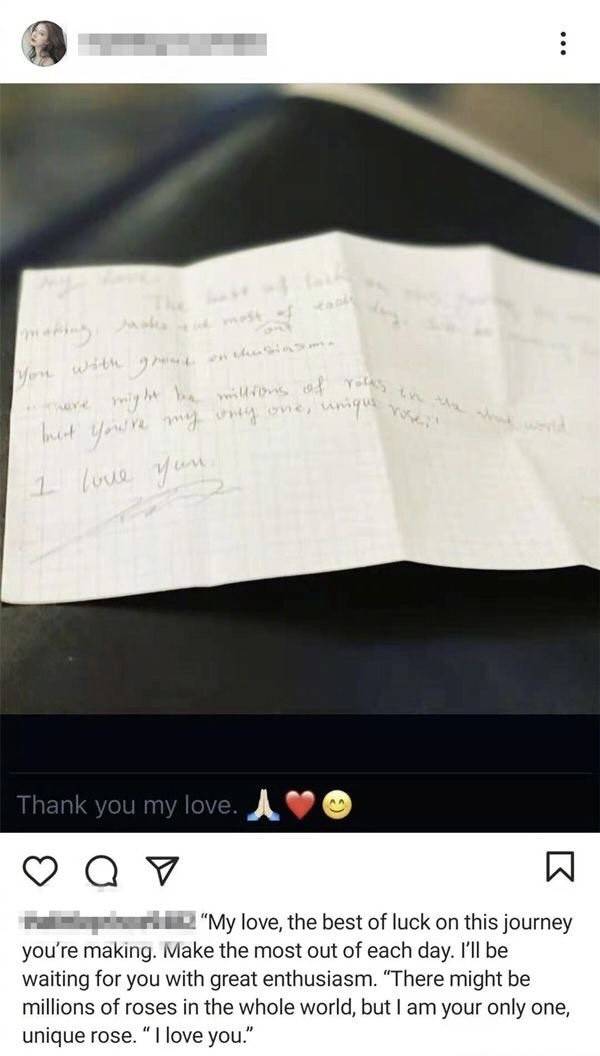 my love
The best of luck on this journey you're
making, make the most of each day. I'll be waiting
out
you with great enthusiasm.
There might be millions of roses in the whole world
but you're my only one, unique rose,"
I love you.
Thank you my love. 🙏🏻❤️😊
"My love, the best of luck on this journey
you're making. Make the most out of each day. I'll be
waiting for you with great enthusiasm. "There might be
millions of roses in the whole world, but I am your only one,
unique rose. " I love you."